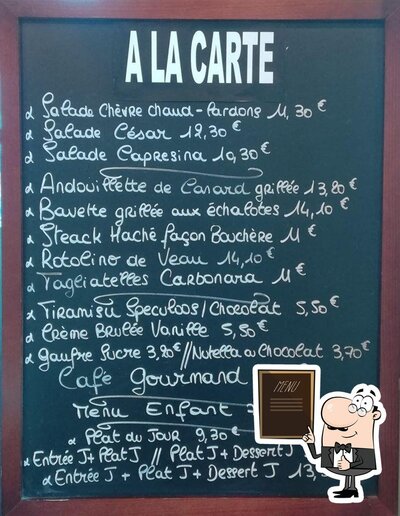 A LA CARTE
α Salade Chèvre chaud - Lardons 11,30 €
α Salade César 12,30 €
α Salade Capresina 10,30 €
α Andouillette de Canard grillée 13,20 €
α Bavette grillée aux échalotes 14,10 €
α Steack Haché façon Bouchère 11 €
α Rotolino de Veau 14,10 €
α Tagliatelles Carbonara 11 €
α Tiramisu Speculoos / Chocolat 5,50 €
α Crème Brulée Vanille 5,50 €
α Gaufre Sucre 3,20 € // Nutella ou Chocolat 3,70 €
Café Gourmand
Menu Enfant
α Plat du Jour 9,30 €
α Entrée J + Plat J // Plat J + Dessert J
α Entrée J + Plat J + Dessert J 13,
MENU